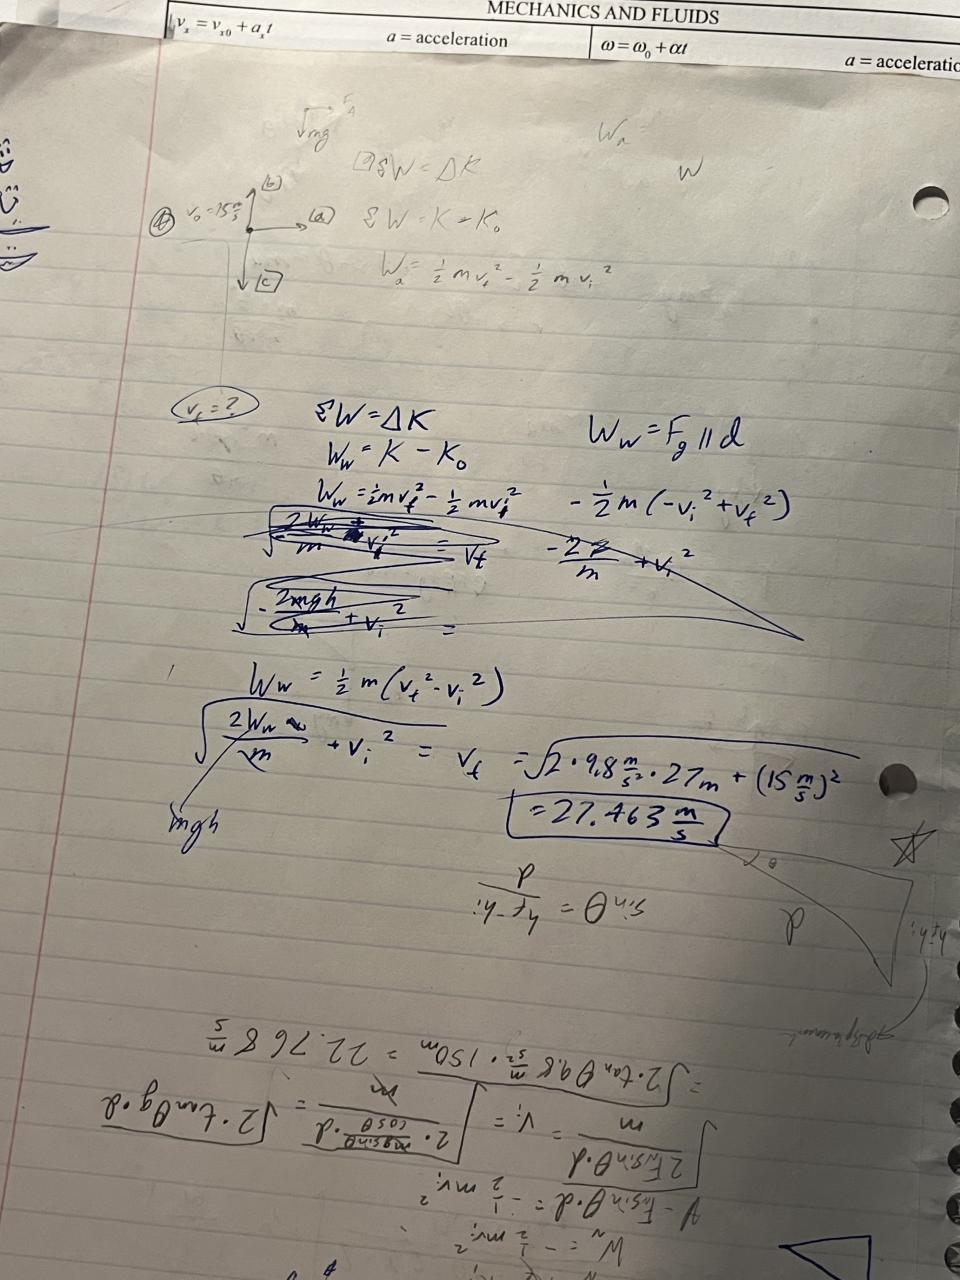 MECHANICS AND FLUIDS
vₓ = vₓ₀ + aₓt
a = acceleration
ω = ω₀ + αt
a = acceleratio
mg
Wₐ
ΣW = ΔK
W
v₀ = 15 m/s
(b)
(a)
ΣW = K - K₀
(c)
Wₐ = ½ m v_f² - ½ m v_i²
v_f = ?
ΣW = ΔK
W_w = F_g ∥ d
W_w = K - K₀
W_w = ½mv_f² - ½ mv_i²
- ½ m (-v_i² + v_f²)
= v_f
+ v_i²
- 2mgh/m + v_i² =
W_w = ½ m (v_f² - v_i²)
√(2W_w/m + v_i²) = v_f = √(2 · 9.8 m/s² · 27m + (15 m/s)²)
mgh
= 27.463 m/s
θ
sin θ = (h_f - h_i)/d
d
h_f - h_i
W_N = - ½ mv_i²
- F_N sin θ · d = - ½ mv_i²
√(2F_N sin θ · d / m) = v_i = √(2 · (mg sin θ / cos θ) · d / m) = √(2 · tan θ g · d)
= √(2 · tan θ 9.8 m/s² · 150m) = 22.768 m/s